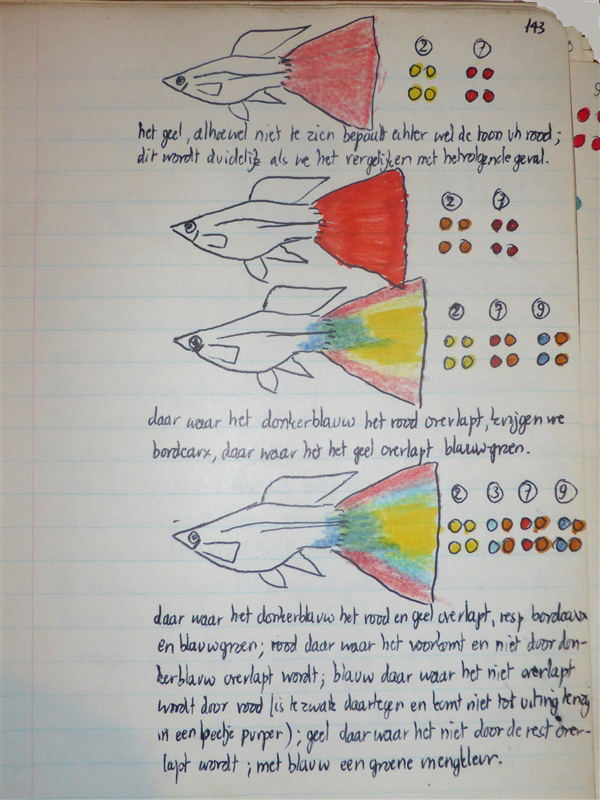 143
② ⑦
het geel, alhoewel niet te zien bepaalt echter wel de toon v/h rood;
dit wordt duidelijk als we het vergelijken met het volgende geval.
② ⑦
② ⑦ ⑨
daar waar het donkerblauw het rood overlapt, krijgen we
bordeaux, daar waar het het geel overlapt blauwgroen.
② ③ ⑦ ⑨
daar waar het donkerblauw het rood en geel overlapt, resp bordeaux
en blauwgroen; rood daar waar het voorkomt en niet door don-
kerblauw overlapt wordt; blauw daar waar het niet overlapt
wordt door rood (is te zwak daartegen en komt niet tot uiting tenzij
in een beetje purper); geel daar waar het niet door de rest over-
lapt wordt; met blauw een groene mengkleur.